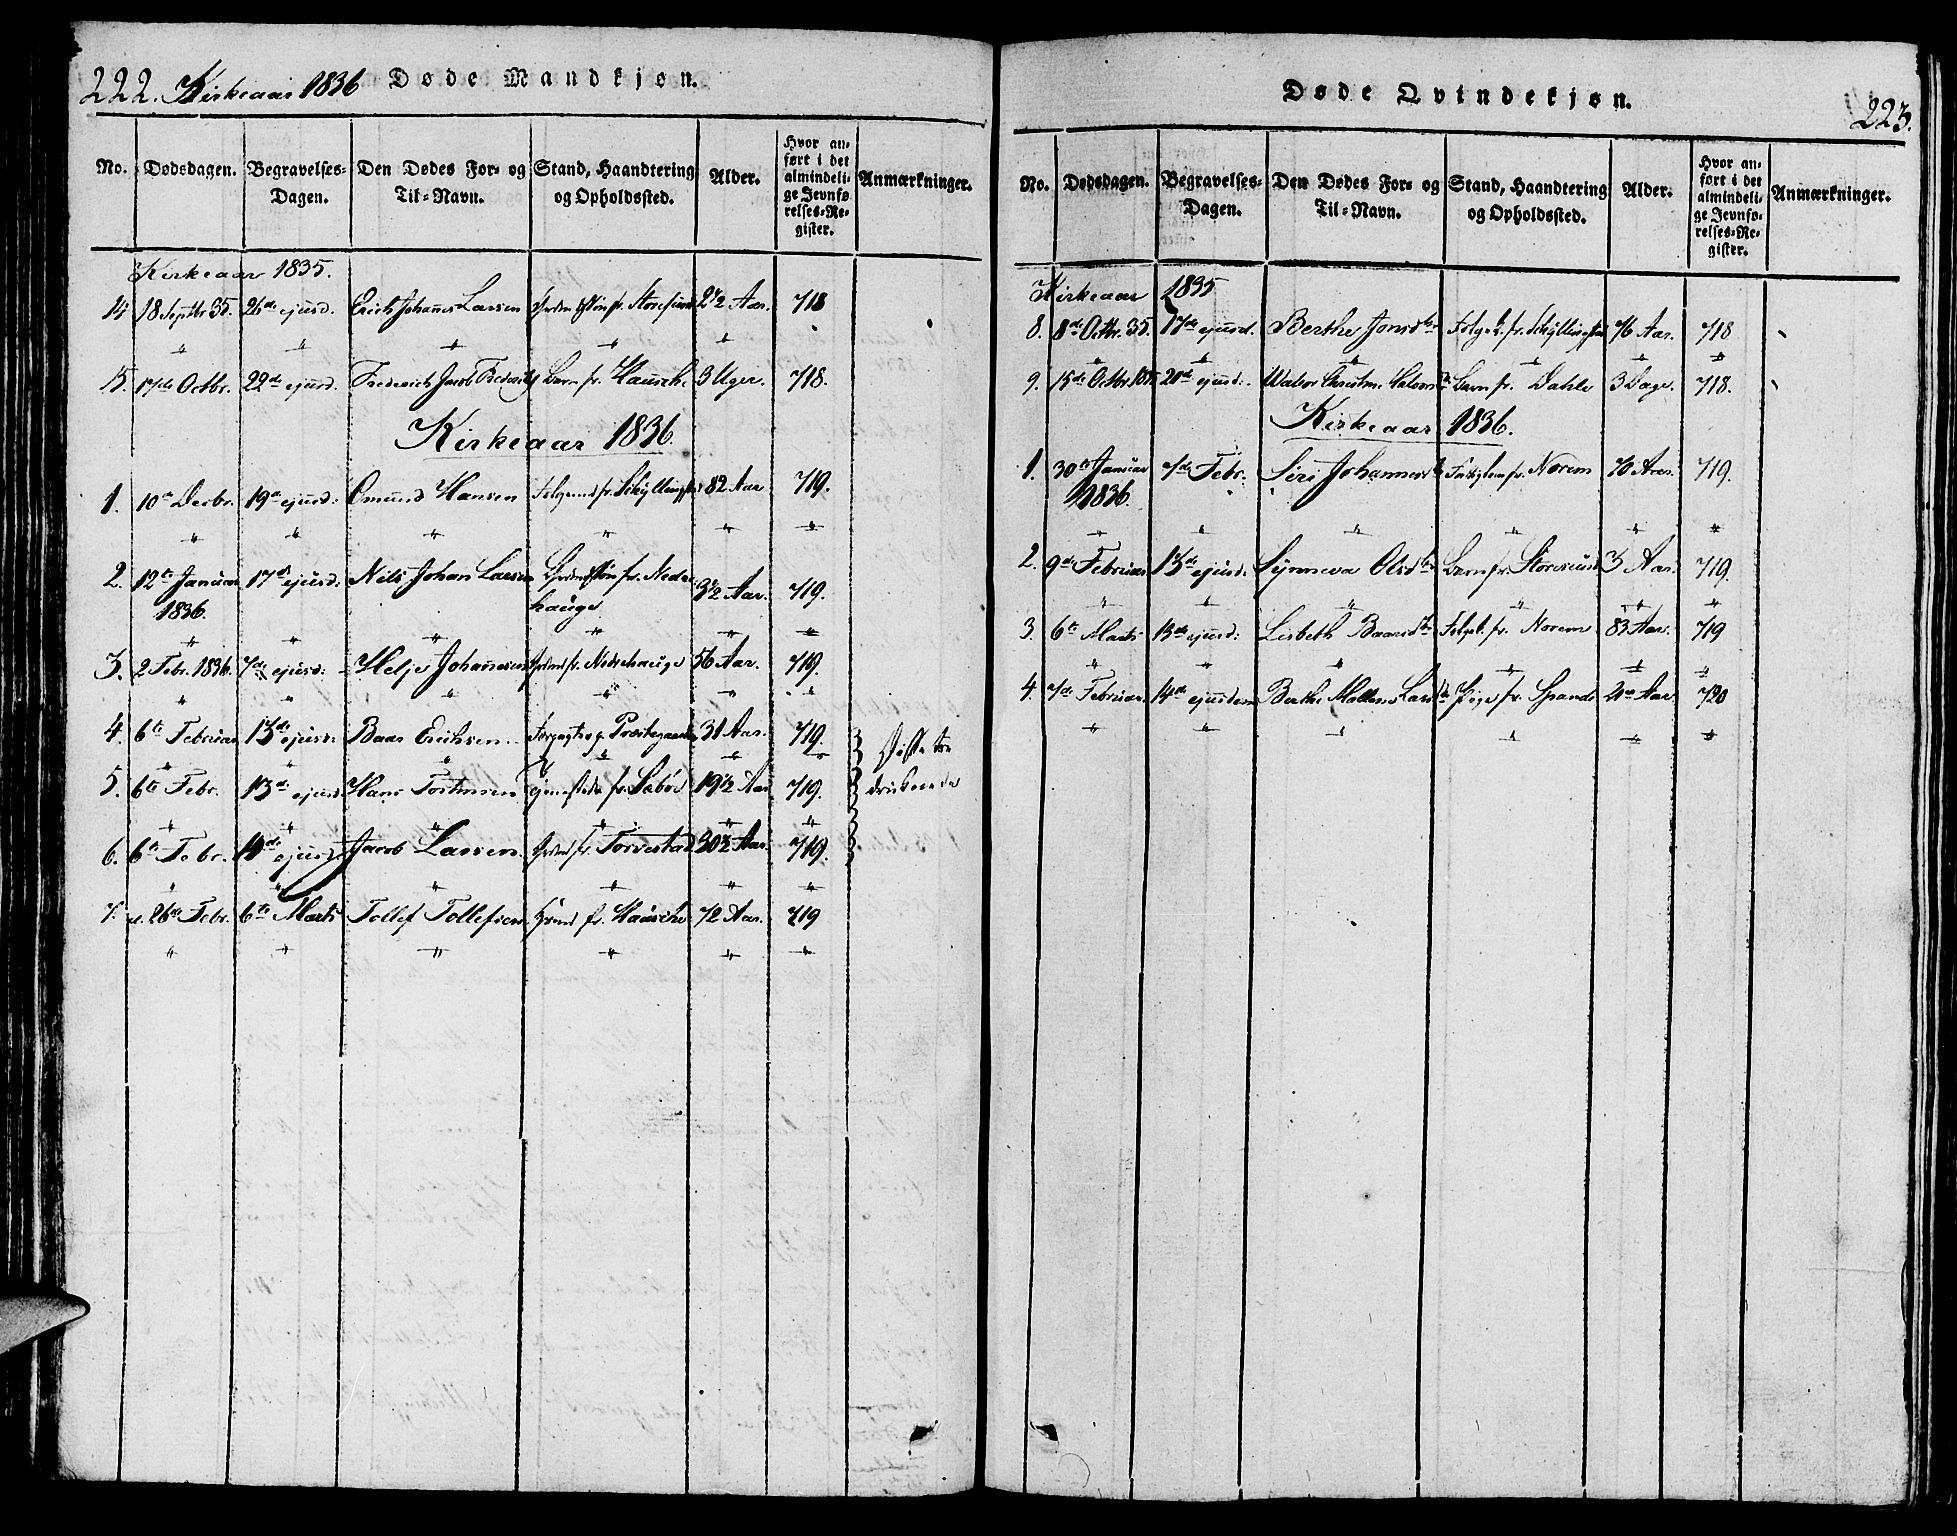 222. Kirkeaar 1836 Døde Mandkjøn.
No. Dødsdagen. Begravelses-Dagen. Den Dødes For- og Til-Navn. Stand, Haandtering og Opholdssted. Alder. Hvor anført i det almindelige Jevnførelses-Register. Anmærkninger.
Kirkeaar 1835.
14 18 Septbr 35. 26de ejusd. Erich Johannes Larsen fr. Storesund 2 1/2 Aar. 718
15. 17de Octbr. 22de ejusd. Frederich Jacob Barn fr. Hauske 3 Uger. 718.
Kirkeaar 1836.
1. 10de Decbr. 19de ejusd: Omund Hansen fr. 82 Aar 719.
2. 12te Januar 17de ejusd: Nils Johan Larsen fr. Nedre 3 1/2 Aar. 719.
1836. hauge
3. 2 Febr. 1836. 7de ejusd: Helje Johannesen fr. Nedrehauge 56 Aar. 719.
4. 6te Februar 13de ejusd: Baar Erichsen 31 Aar. 719. Disse tre
5. 6te Febr. 13de ejusd Hans fr. Sæbøe 19 1/2 Aar 719. druknede
6. 6te Febr. 14de ejusd. Jacob Larsen fr. Torvestad 30 1/2 Aar. 719.
7. d. 26de Febr. 6te Marts Tollef Tollefsen fr. Hauske 72 Aar. 719
Døde Qvindekjøn. 223.
No. Dødsdagen. Begravelses-Dagen. Den Dødes For- og Til-Navn. Stand, Haandtering og Opholdssted. Alder. Hvor anført i det almindelige Jevnførelses-Register. Anmærkninger.
Kirkeaar 1835
8. 8de Octbr. 35. 17de ejusd. Berthe Jonsdtr fr. 76 Aar. 718
9. 15de Octbr. 20de ejusd: Barn fr. Dahle 3 Dage. 718.
Kirkeaar 1836.
1. 30te Januar 7de Febr. Siri Johannesdtr fr. Norem 70 Aar. 719.
1836.
2. 9de Februar 13de ejusd: Synneva Olsdtr Barn fr. Storesund 3 Aar. 719.
3. 6te Marts 13de ejusd: Lisbeth Baarsdtr fr. Norem 83 Aar. 719
4. 7de Februar. 14de ejusdem Berthe Malene Larsdtr Pige fr. Spande Aar. 720